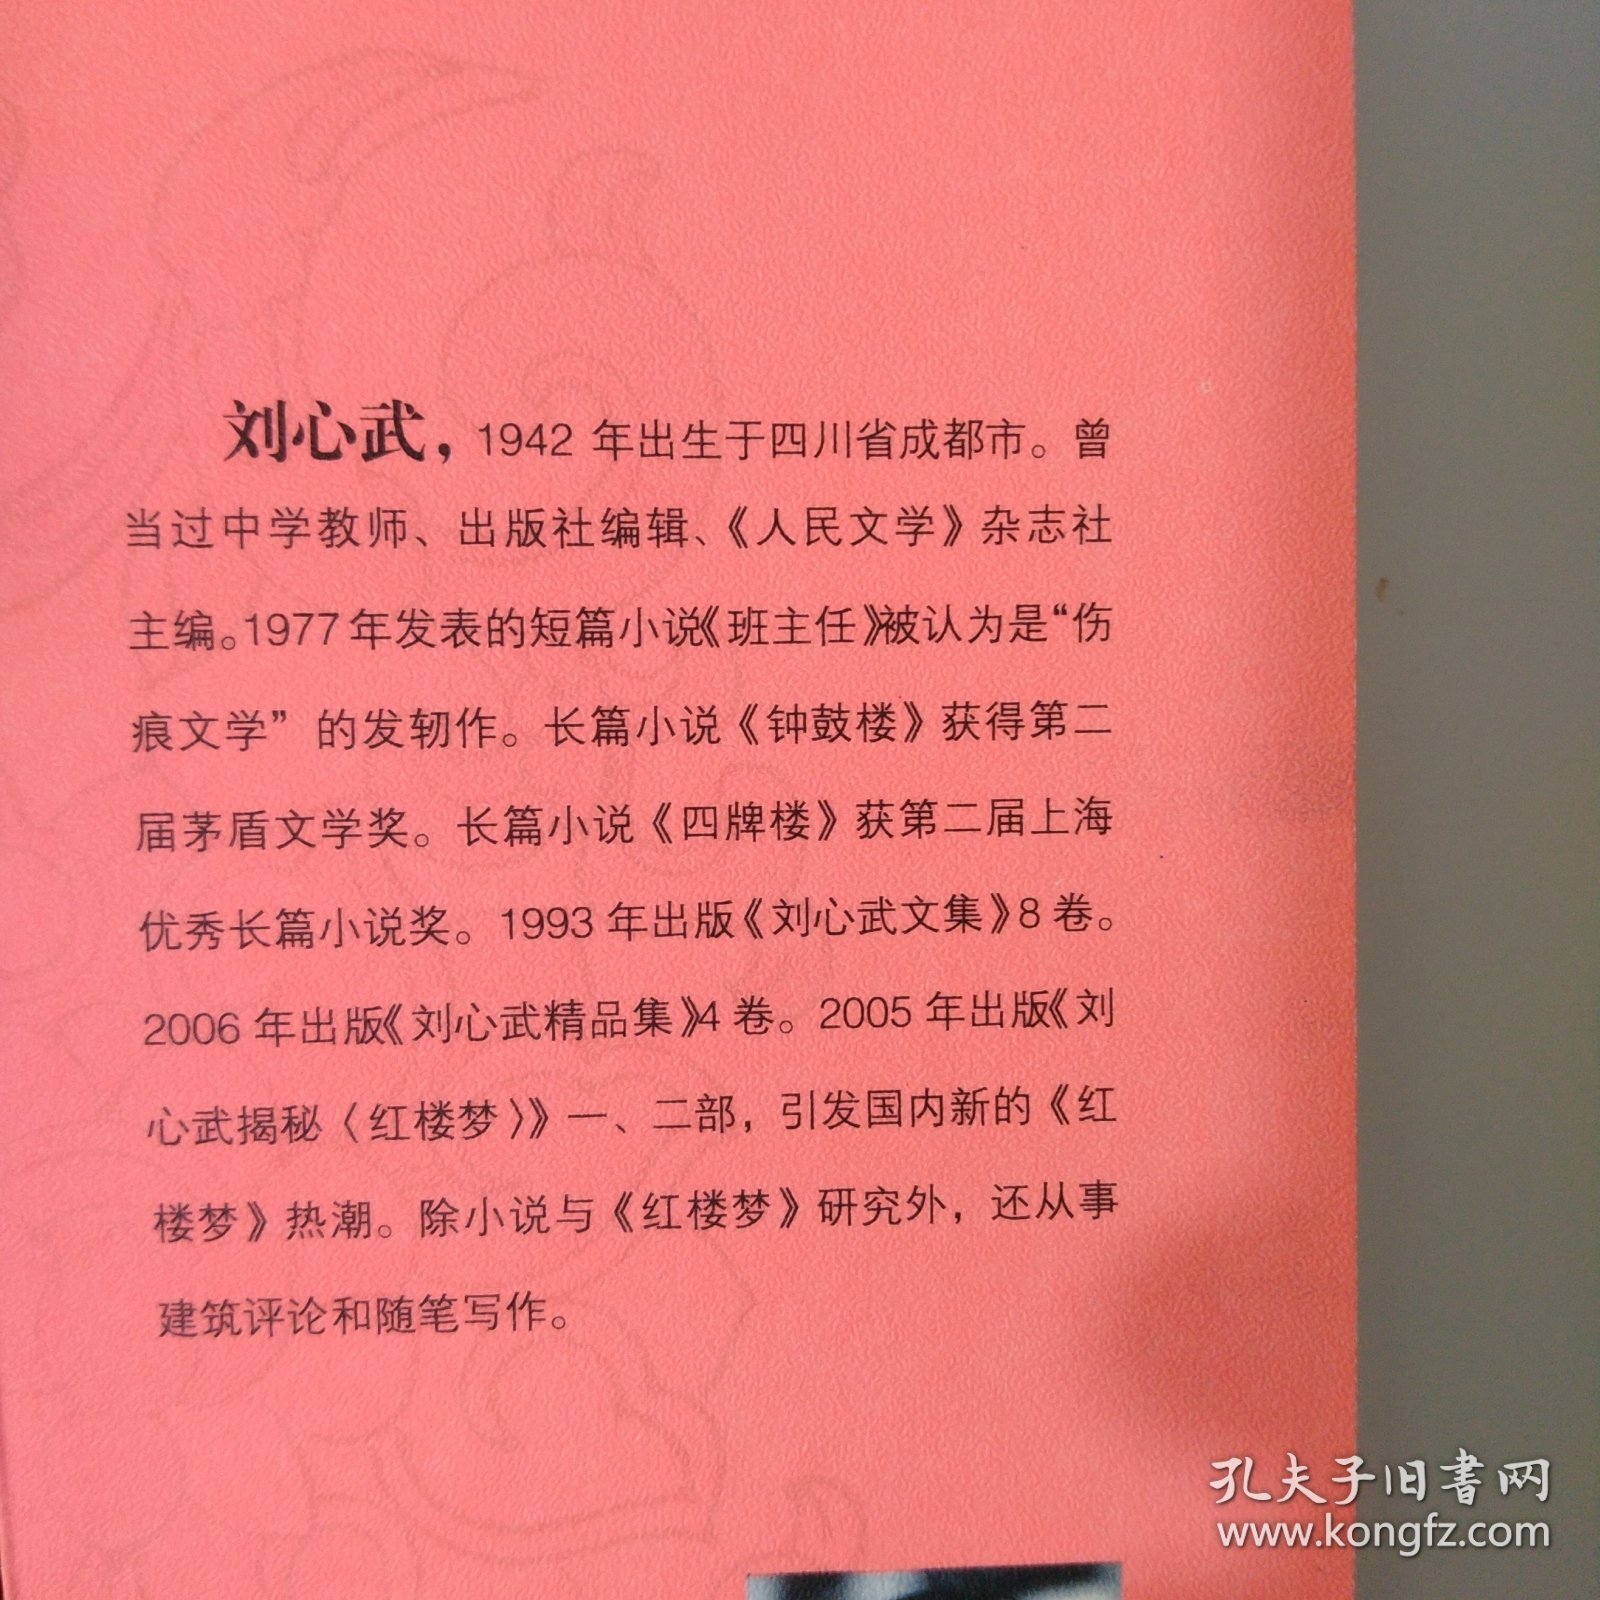 刘心武，1942 年出生于四川省成都市。曾
当过中学教师、出版社编辑、《人民文学》杂志社
主编。1977年发表的短篇小说《班主任》被认为是“伤
痕文学”的发轫作。长篇小说《钟鼓楼》获得第二
届茅盾文学奖。长篇小说《四牌楼》获第二届上海
优秀长篇小说奖。1993 年出版《刘心武文集》8 卷。
2006 年出版《刘心武精品集》4 卷。2005 年出版《刘
心武揭秘〈红楼梦〉》一、二部，引发国内新的《红
楼梦》热潮。除小说与《红楼梦》研究外，还从事
建筑评论和随笔写作。
孔夫子旧书网
www.kongfz.com